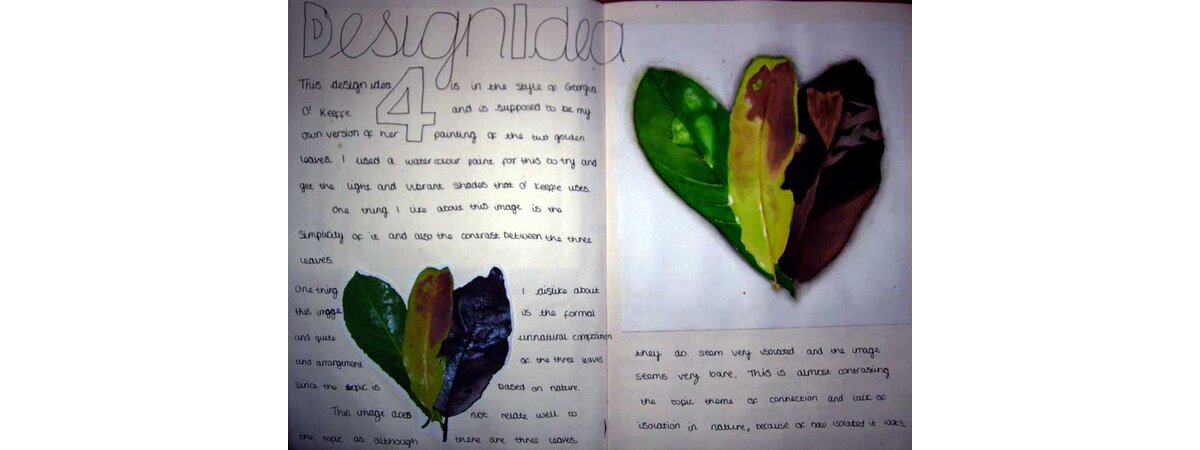 Design Idea
4
This design idea is in the style of Georgia
O' Keeffe and is supposed to be my
own version of her painting of the two golden
leaves. I used a watercolour paint for this to try and
get the light and vibrant shades that O' Keeffe uses.
One thing I like about this image is the
simplicity of it and also the contrast between the three
leaves.
One thing I dislike about
this image is the formal
and quite unnatural comparison
and arrangement of the three leaves
since the topic is based on nature.
This image does not relate well to
the topic as although there are three leaves,
they do seem very isolated and the image
seems very bare. This is almost contrasting
the topic theme of connection and lack of
isolation in nature, because of how isolated it looks.